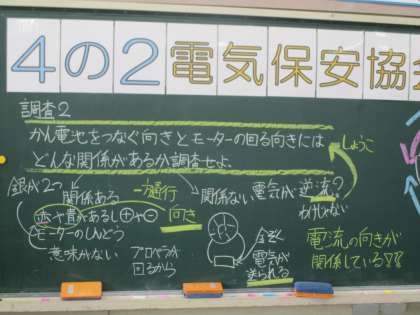 4の2電気保安協会
調査2
かん電池をつなぐ向きとモーターの回る向きには
どんな関係があるか調査せよ。
しょうこ
銀が2つ
関係ある
一方通行
関係ない
電気が逆流?
わけじゃない
赤や青があるし⊕や⊖
向き
モーターのしんどう
意味がない
プロペラが
回るから
全部
電気が
送られる
電流の向きが
関係している!!